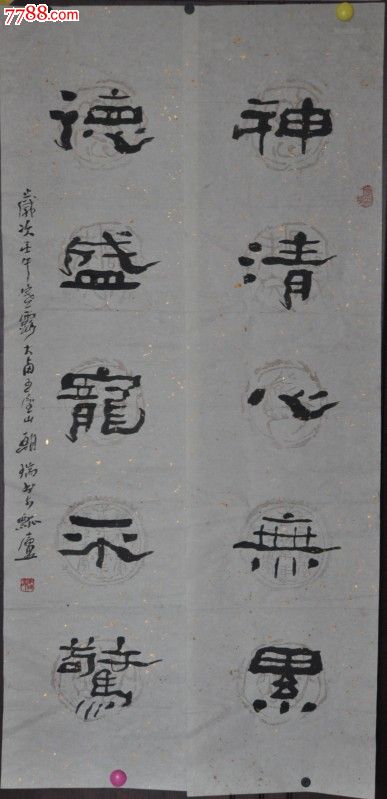 7788.com
神清心無累
德盛寵不驚
歲次壬午寒露大卤山朝瑞书於瓢盧